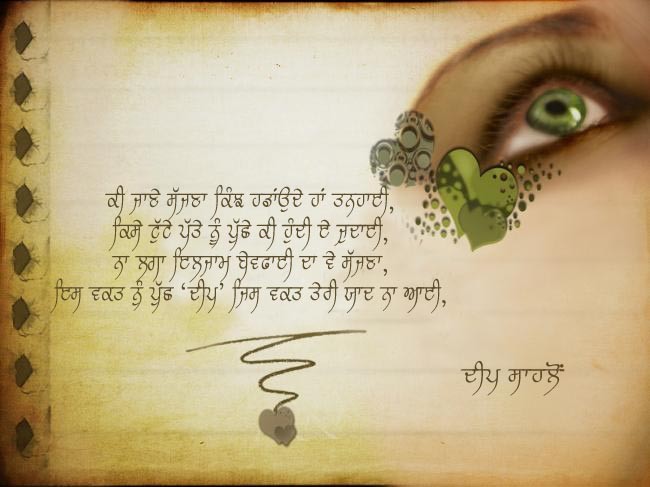 ਕੀ ਜਾਣੇ ਸੱਜਣਾ ਕਿੰਝ ਹਡਾਂਉਦੇ ਹਾਂ ਤਨਹਾਈ,
ਕਿਸੇ ਟੁੱਟੇ ਪੱਤੇ ਨੂੰ ਪੁੱਛੇ ਕੀ ਹੁੰਦੀ ਏ ਜੁਦਾਈ,
ਨਾ ਲਗਾ ਇਲਜਾਮ ਬੇਵਫਾਈ ਦਾ ਵੇ ਸੱਜਣਾ,
ਇਸ ਵਕਤ ਨੂੰ ਪੁੱਛ ‘ਦੀਪ’ ਜਿਸ ਵਕਤ ਤੇਰੀ ਯਾਦ ਨਾ ਆਈ,
ਦੀਪ ਸਾਹਲੋਂ